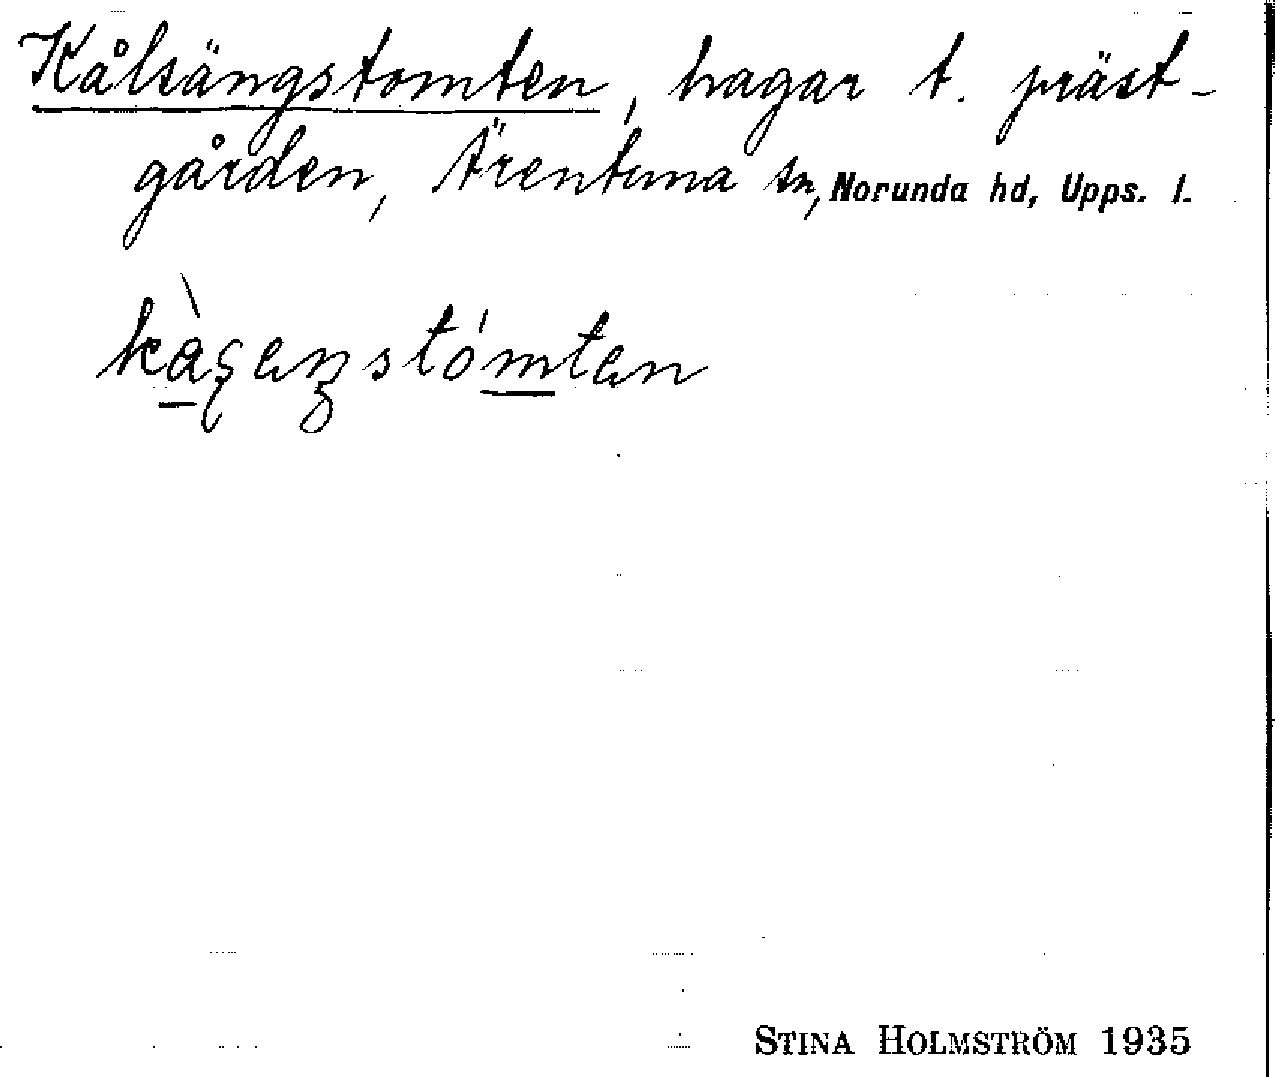 Kålsängstomten, hagar t. präst-
gården, Ärentuna sn, Norunda hd, Upps. l.
STINA HOLMSTRÖM 1935